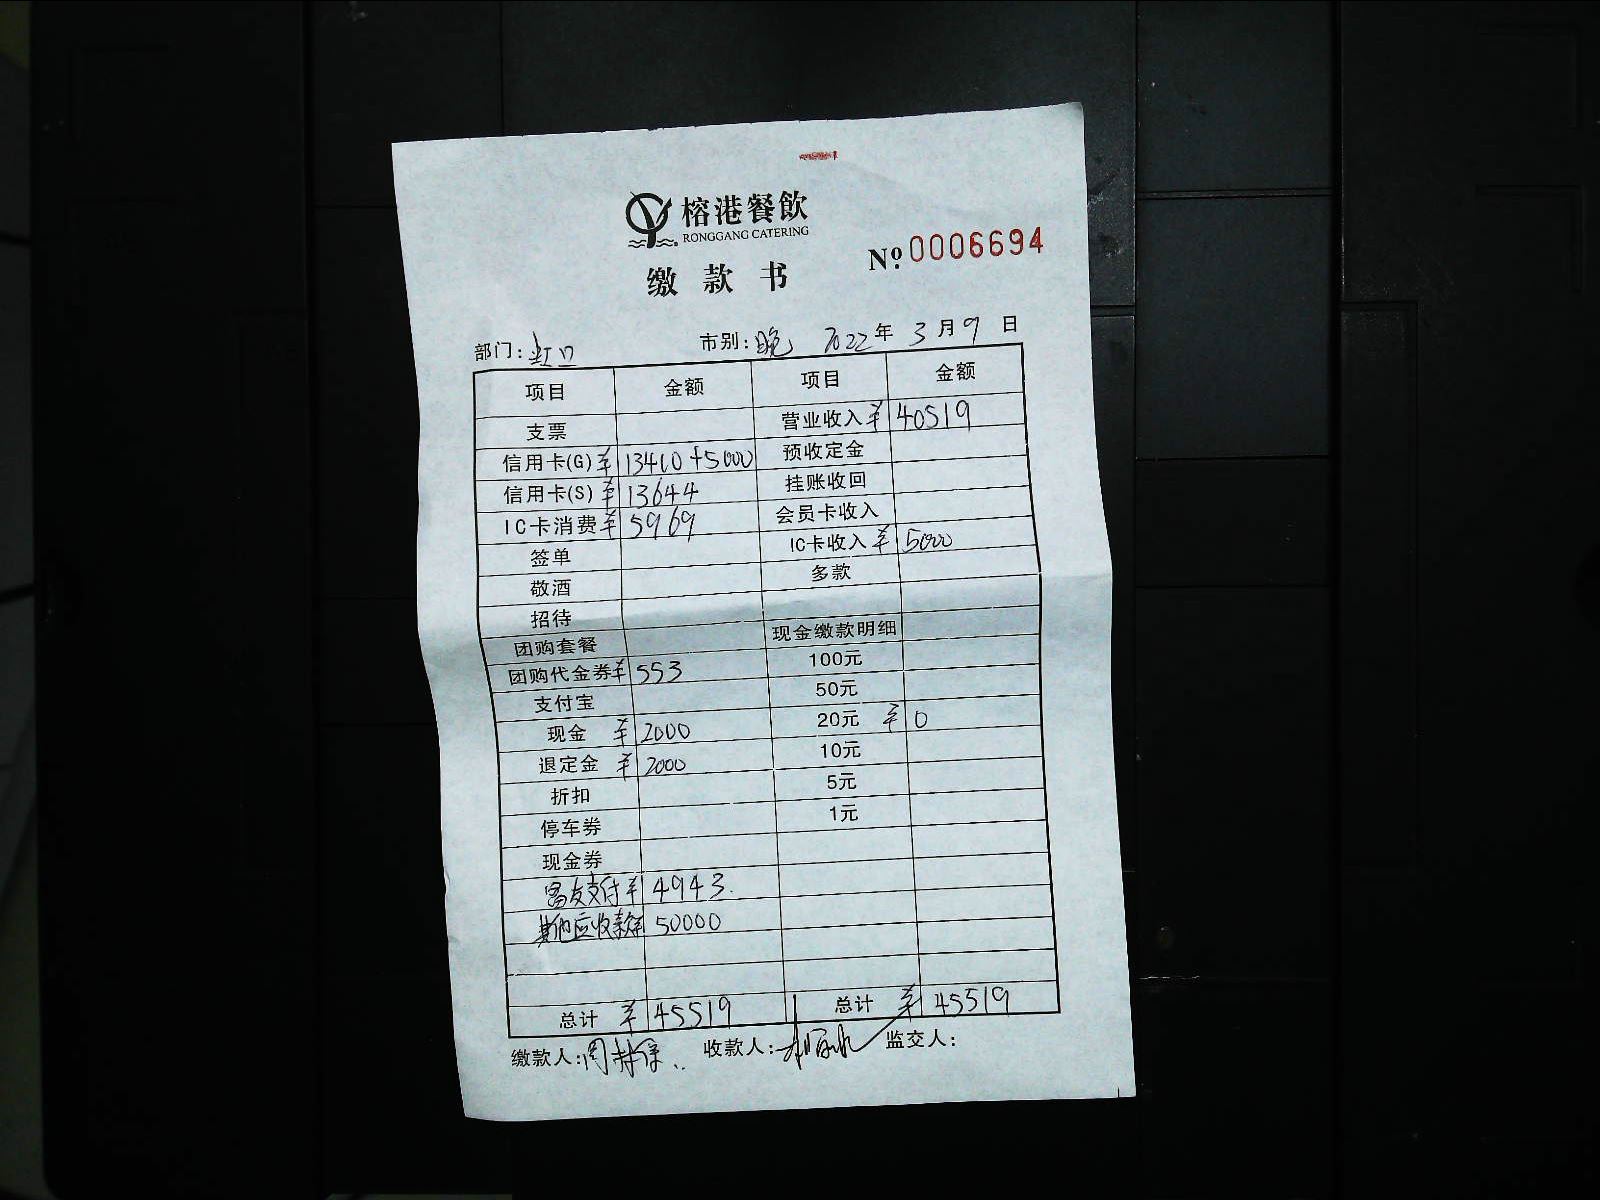 榕港餐飲
RONGGANG CATERING
缴款书
№ 0006694
部门: 虹口 市别: 晚 2022年3月9日
项目 金额 项目 金额
支票 营业收入 ¥ 40519
信用卡(G) ¥ 13410+5000 预收定金
信用卡(S) ¥ 13644 挂账收回
IC卡消费 ¥ 5969 会员卡收入
签单 IC卡收入 ¥ 5000
敬酒 多款
招待
团购套餐 现金缴款明细
团购代金券 ¥ 553 100元
支付宝 50元
现金 ¥ 2000 20元 ¥ 0
退定金 ¥ 2000 10元
折扣 5元
停车券 1元
现金券
支付 ¥ 4943.
其他应收款 ¥ 50000
总计 ¥ 45519 总计 ¥ 45519
缴款人: 收款人: 监交人: